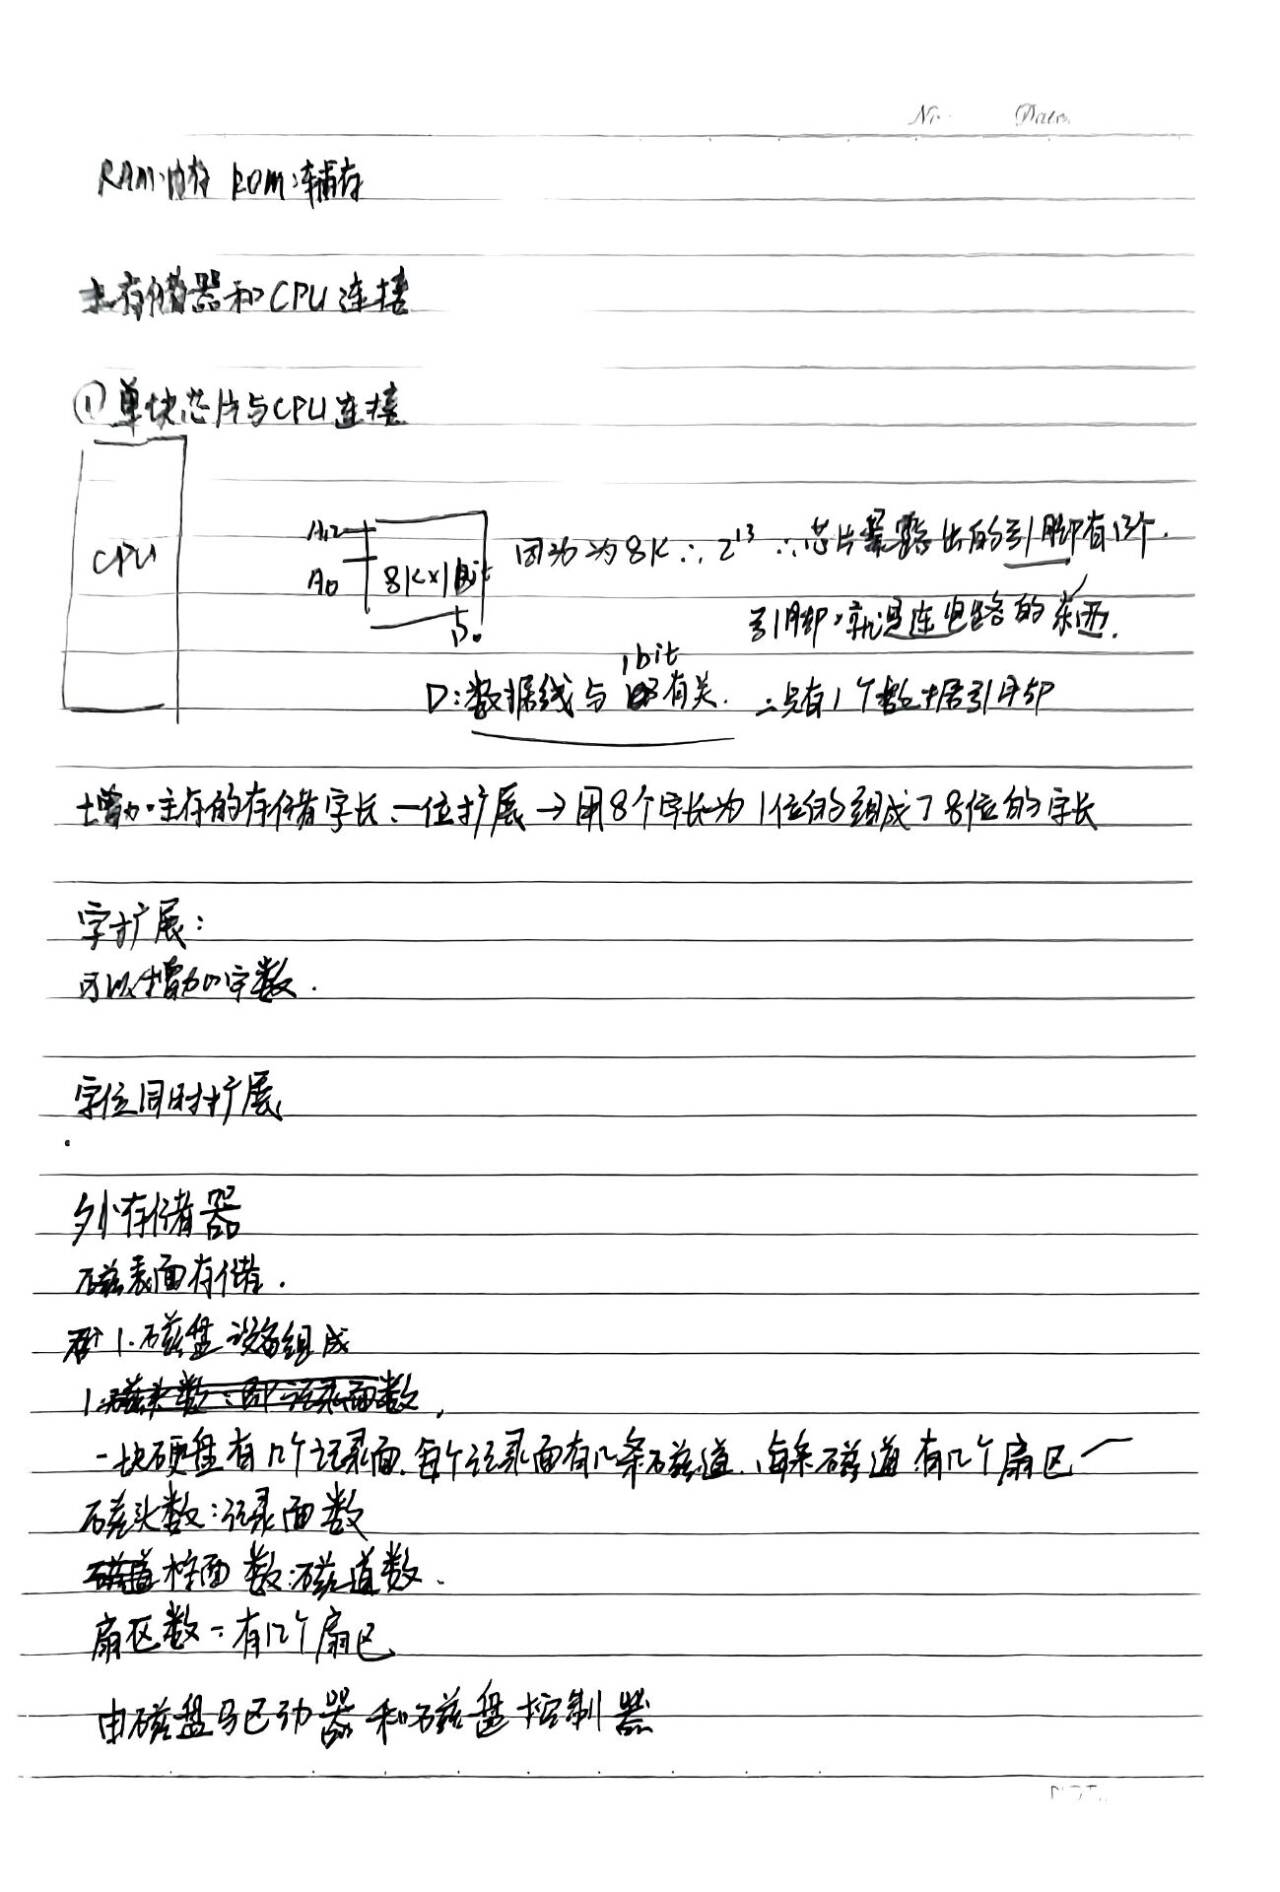 No. Date.
RAM:内存 ROM:辅存
主存储器和CPU连接
①单块芯片与CPU连接
CPU
A12
A0
8K×1Bit
D0
因为为8K∴2^13 ∴芯片暴露出的引脚有13个.
引脚:就是连电路的东西.
1bit
D:数据线与 有关. ∴只有1个数据引脚
增加主存的存储字长、—位扩展→用8个字长为1位的组成了8位的字长
字扩展:
可以增加字数.
字位同时扩展
外存储器
磁表面存储.
1.磁盘设备组成
1.磁头数:即记录面数,
一块硬盘有几个记录面.每个记录面有几条磁道.每条磁道有几个扇区
磁头数:记录面数
磁道柱面数:磁道数.
扇区数=有几个扇区
由磁盘驱动器和磁盘控制器